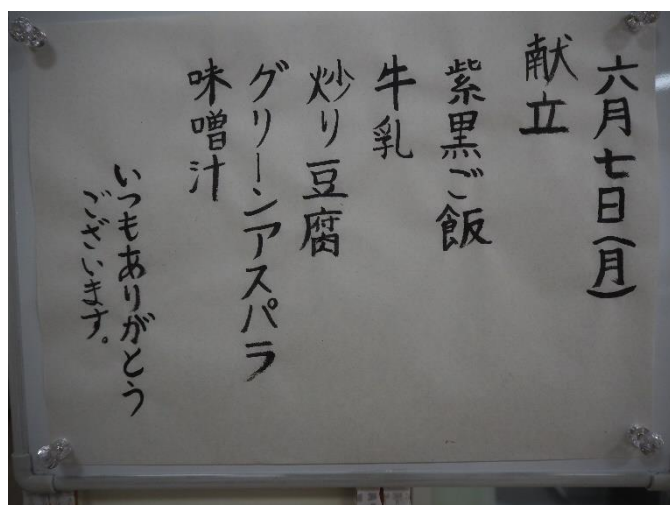 六月七日（月）
献立
紫黒ご飯
牛乳
炒り豆腐
グリーンアスパラ
味噌汁
いつもありがとう
ございます。